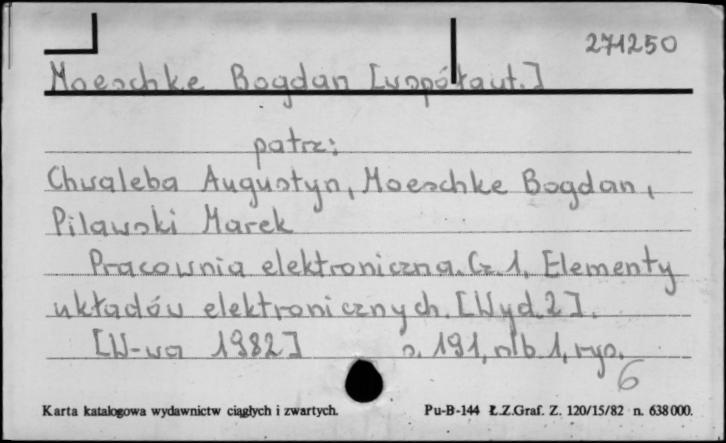 271250
Moeschke Bogdan [współaut.]
patrz:
Chwaleba Augustyn, Moeschke Bogdan,
Pilawski Marek
Pracownia elektroniczna. Cz. 1, Elementy
układów elektronicznych. [Wyd. 2].
[W-wa 1982] s. 191, nlb. 1, rys.
6
Karta katalogowa wydawnictw ciągłych i zwartych. Pu-B-144 Ł.Z.Graf. Z. 120/15/82 n. 638000.